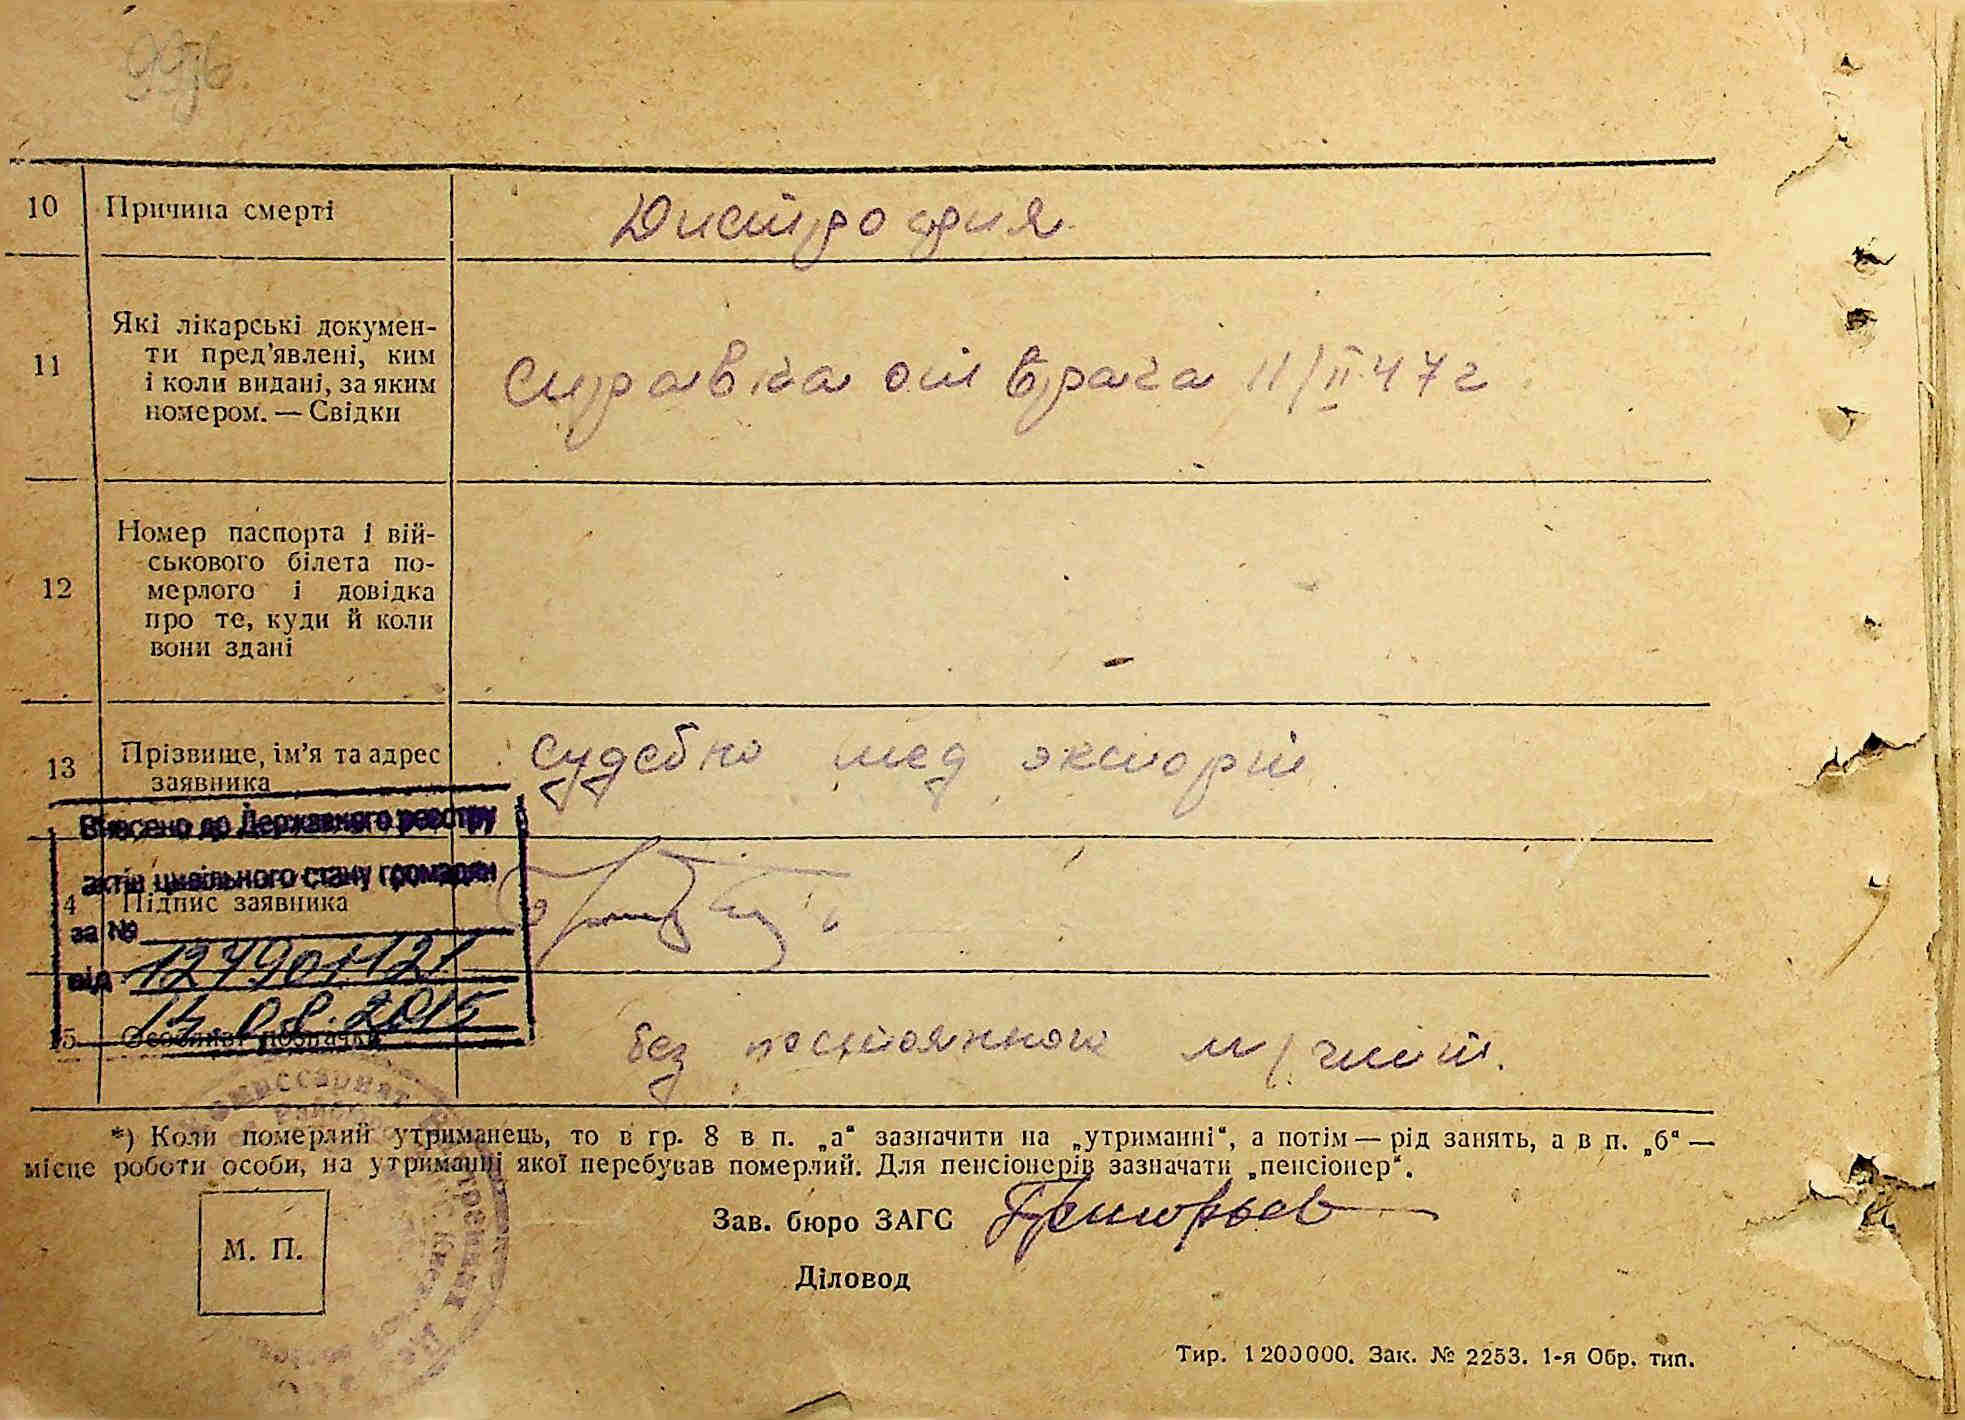 10
Причина смерті
Дистрофия
11
Які лікарські докумен-
ти пред'явлені, ким
і коли видані, за яким
номером. — Свідки
Справка от врача 11/II 47 г
12
Номер паспорта і вій-
ськового білета по-
мерлого і довідка
про те, куди й коли
вони здані
13
Прізвище, ім'я та адрес
заявника
судебно мед эксперт
Внесено до Державного реєстру
актів цивільного стану громадян
4 Підпис заявника
за №
від 127901121
14.08.2015
5 Особливі позначки
без постоянного м/жит.
*) Коли померлий утриманець, то в гр. 8 в п. „а“ зазначити на „утриманні“, а потім — рід занять, а в п. „б“ —
місце роботи особи, на утриманні якої перебував померлий. Для пенсіонерів зазначати „пенсіонер“.
М. П.
Зав. бюро ЗАГС Григорьев
Діловод
Тир. 1200000. Зак. № 2253. 1-я Обр. тип.